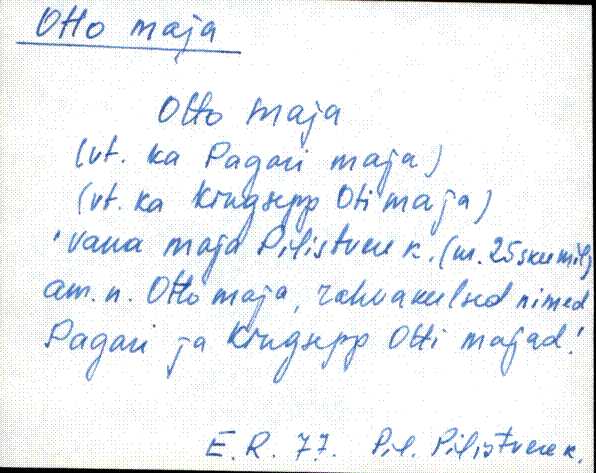 Otto maja
Otto maja
(vt. ka Pagari maja)
(vt. ka Kingsepp Oti maja)
'vana maja Pilistvere k. (m. 25
am. n. Otto maja, rahvakeelsed nimed
Pagari ja Kingsepp Otti majad.'
E.R. 77. Pil. Pilistvere k.